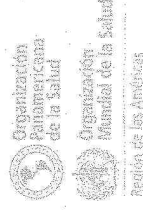 Organización
Panamericana
de la Salud
Organización
Mundial de la Salud
Región de las Américas